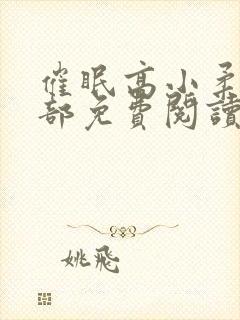 催眠高小柔
部免費閱讀
姚飛